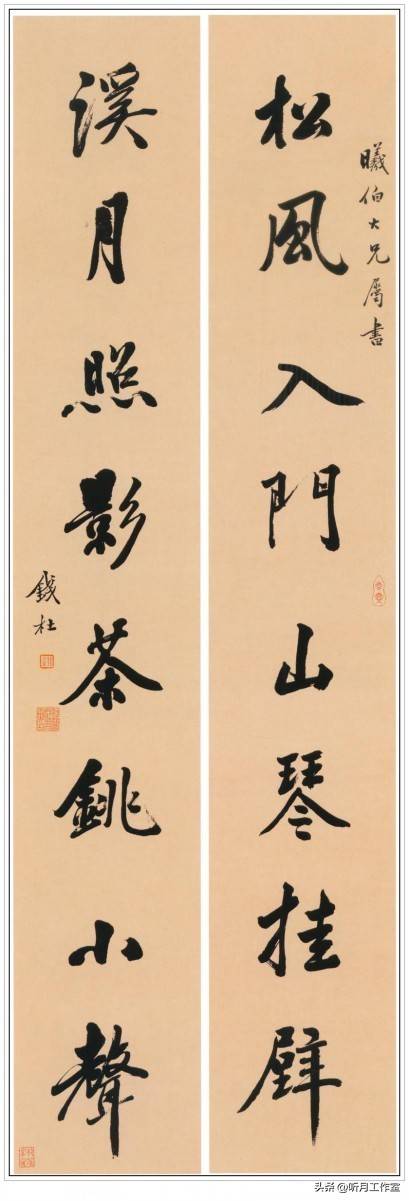 曦伯大兄屬書
松風入門山琴挂壁
溪月照影茶銚小聲
錢杜
头条 @听月工作室